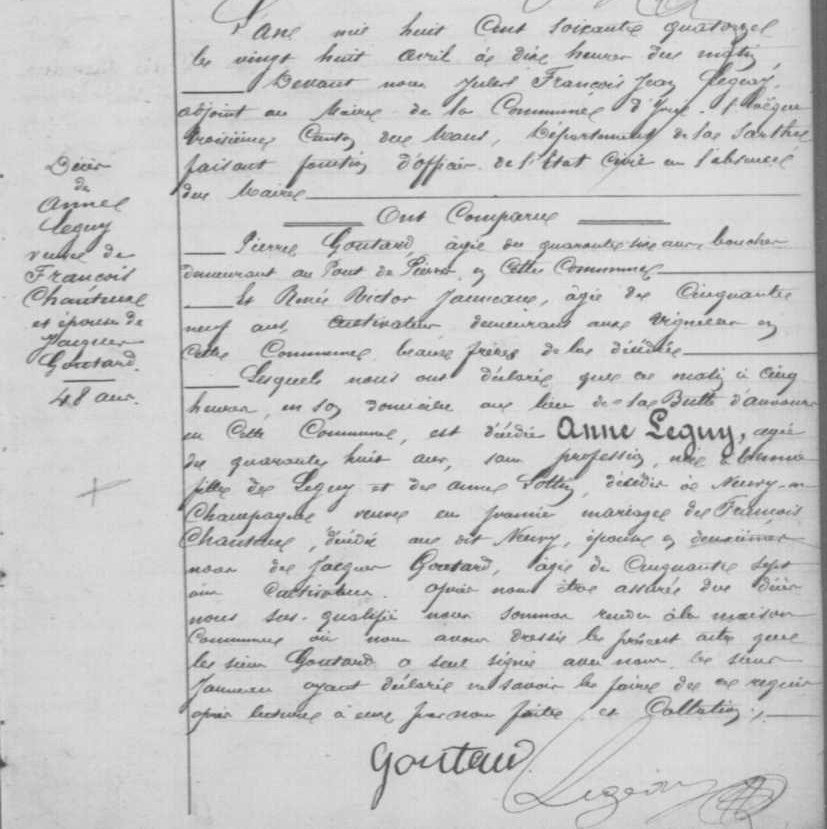 Décès
de
Anne
Leguy
veuve de
François
Chanteau
et épouse de
Jacques
Goutard.
48 ans.
L'An mil huit Cent soixante quatorze
le vingt huit avril à dix heures du matin
Devant nous Julest François Jean Leguay,
adjoint au Maire de la Commune d'Yvré-l'Evêque
troisième Canton du Mans, Département de la Sarthe
faisant fonction d'officier de l'Etat Civil en l'absence
du Maire
Ont Comparu
Pierre Goutard, âgé de quarante-six ans boucher
demeurant au Pont de Pierre, en cette Commune
Et René Victor Janneaux, âgé de Cinquante
neuf ans, cultivateur demeurant aux Vigneaux en
cette Commune, beaux frères de la décédée
Lesquels nous ont déclaré que ce matin à cinq
heures, en son domicile au lieu de la Butte d'auvours
en cette Commune, est décédée Anne Leguy, agée
de quarante huit ans, sans profession, née à
fille de Leguy et de anne Lottin, décédés à Neuvy-en
Champagne veuve en premier mariage de François
Chanteau, décédé au dit Neuvy, épouse en deuxièmes
noces de Jacques Goutard, âgé de Cinquante sept
ans Cultivateur. Après nous être assuré du décès
nous sus-qualifié nous sommes rendu à la maison
Commune où nous avons dressé le présent acte que
le sieur Goutard a seul signé avec nous le sieur
Janneau ayant déclaré ne savoir le faire de ce requis
après lecture à eux par nous faite et Collation.
Goutard
Leguay